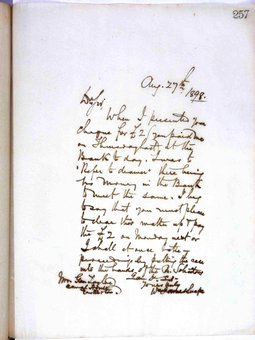 257
Aug. 27th
1898.
D/Sir
When I presented your
cheque for £2/ you paid me
on Thursday last at the
Bank to day. I was to
"Refer to drawer" there being
no money in the Bank
to meet the same. I beg
to say that you must please
to clear this matter up & pay
the £2 on Monday next or
I shall at once take
proceedings by putting the case
into the hands of the Solicitors
Yours truly